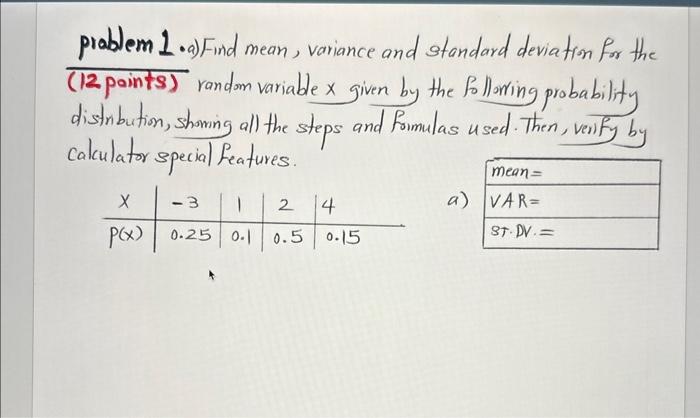 problem 1. a) Find mean, variance and standard deviation for the
(12 points) random variable x given by the following probability
distribution, showing all the steps and formulas used. Then, verify by
calculator special features.
mean=
a) VAR=
ST. DV. =
X -3 1 2 4
P(x) 0.25 0.1 0.5 0.15